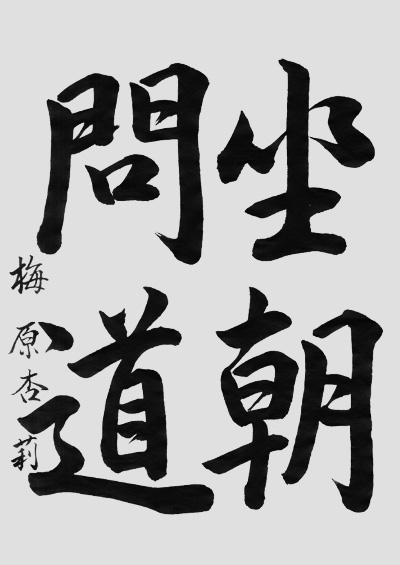 坐朝
問道
梅原杏莉